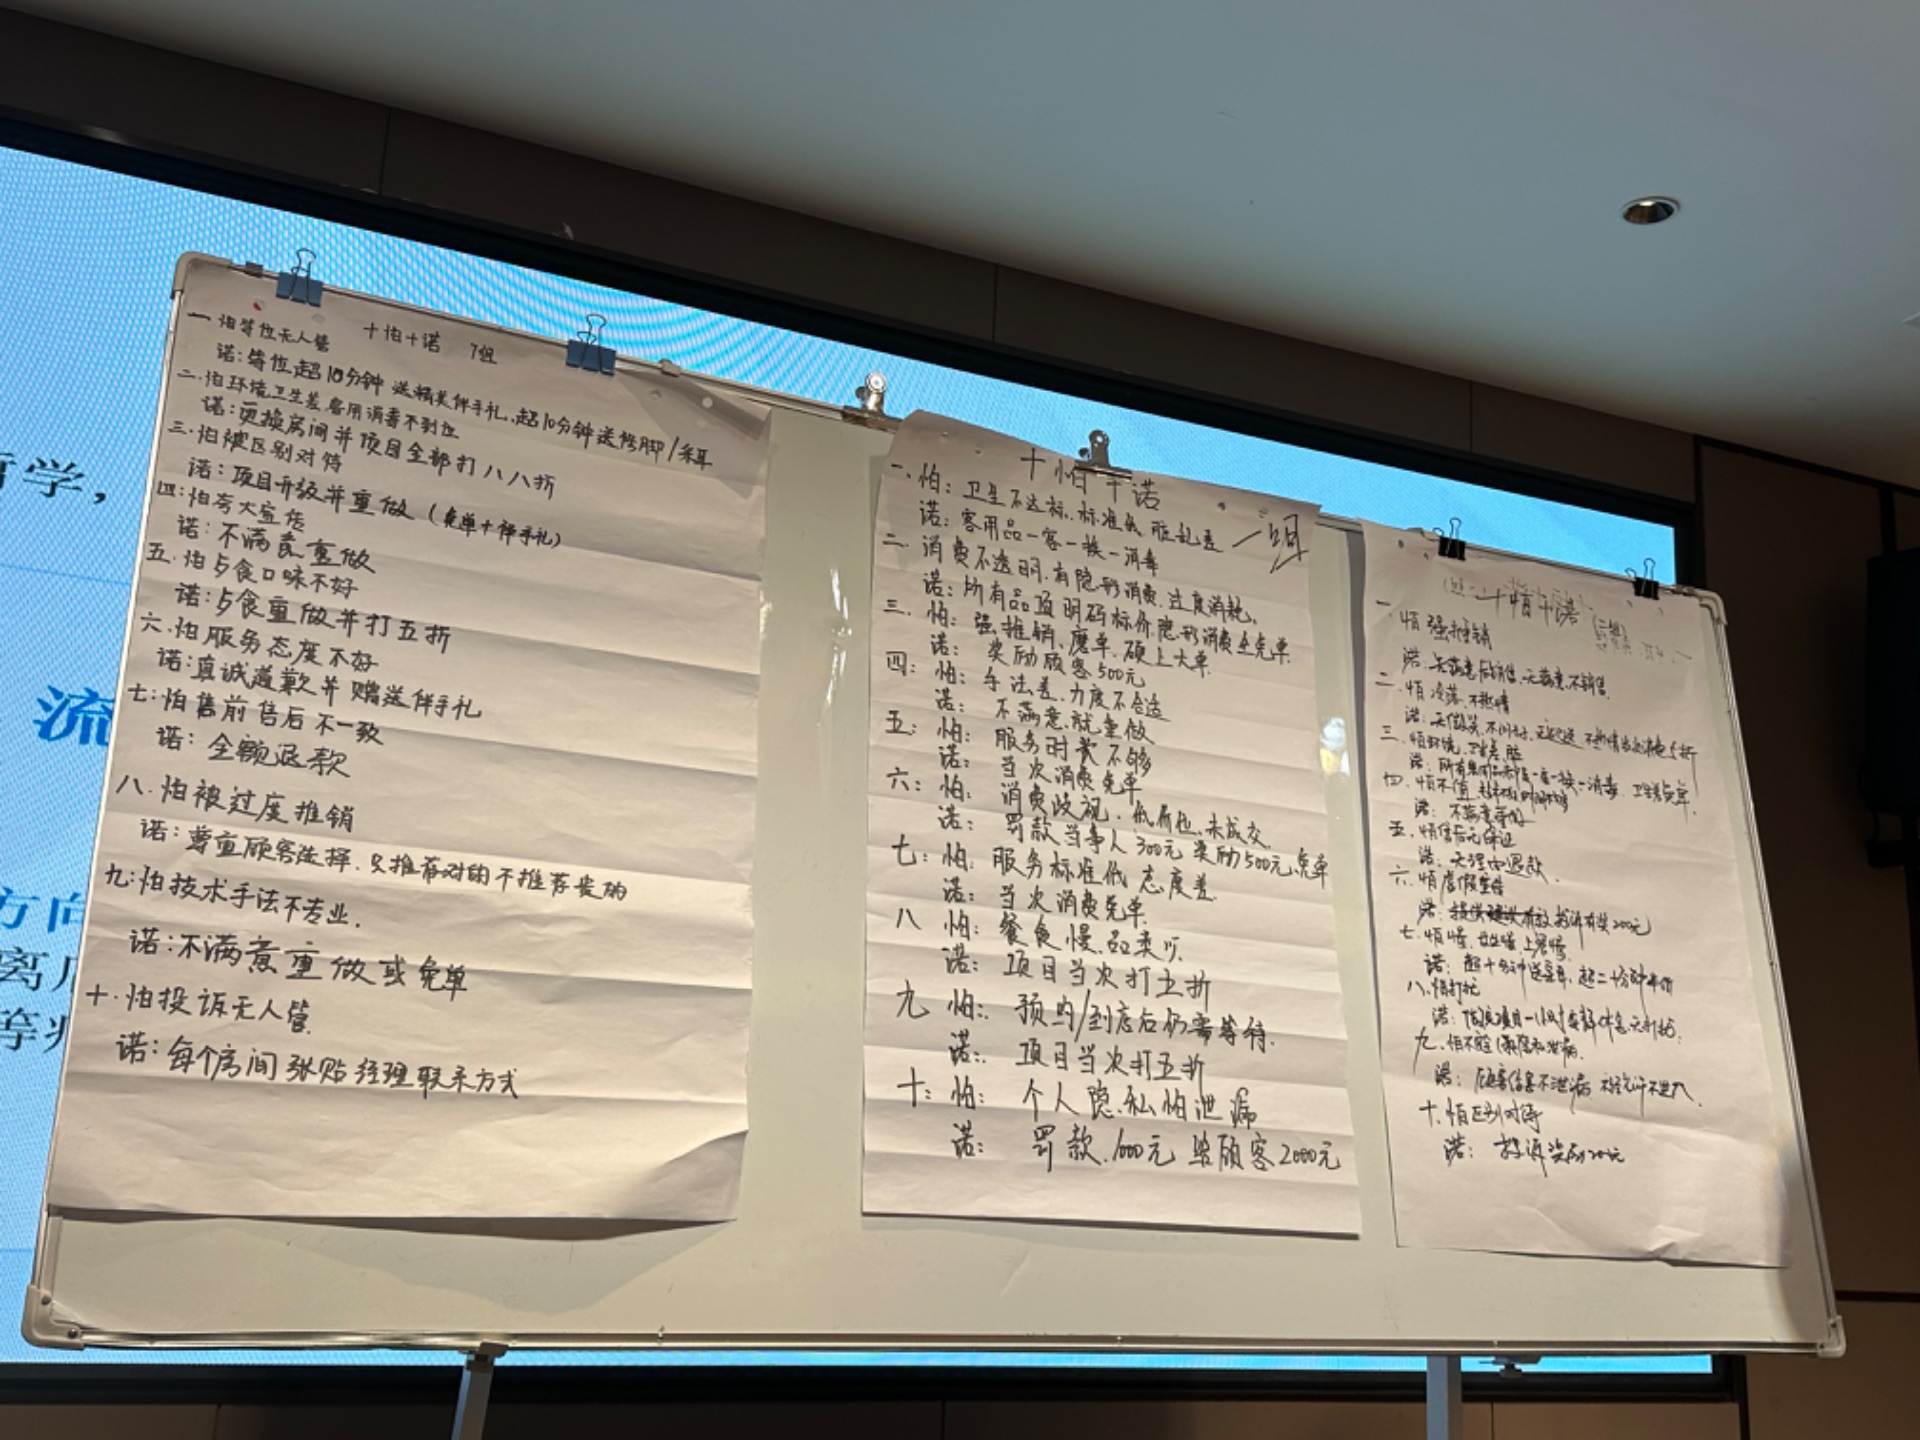 十怕十诺 7组
一 怕等位无人管
诺:等位超10分钟 送精美伴手礼、超10分钟送修脚/采耳
二.怕环境卫生差,客用消毒不到位
诺:更换房间并项目全部打八八折
三.怕被区别对待
诺:项目升级并重做(免单+伴手礼)
四:怕夸大宣传
诺:不满意重做
五.怕占食口味不好
诺:占食重做并打五折
六.怕服务态度不好
诺:真诚道歉并赠送伴手礼
七:怕售前售后不一致
诺:全额退款
八.怕被过度推销
诺:尊重顾客选择.只推荐对的不推荐贵的
九:怕技术手法不专业.
诺:不满意重做或免单
十.怕投诉无人管
诺:每个房间张贴经理联系方式
十怕十诺
一组
一.怕:卫生不达标.标准低 脏乱差
诺:客用品一客一换一消毒
二.消费不透明.有隐形消费.过度消耗、
诺:所有品项明码标价.隐形消费全免单.
三.怕:强推销、磨单.硬上大单.
诺:奖励顾客500元
四:怕:手法差.力度不合适
诺:不满意.就重做
五:怕:服务时长不够
诺:当次消费免单
六:怕:消费歧视.低价位、未成交.
诺:罚款当事人300元奖励500元.免单
七:怕:服务标准低 态度差.
诺:当次消费免单.
八 怕:餐食慢.品类少
诺:项目当次打五折
九 怕:预约/到店后仍需等待.
诺:项目当次打五折
十:怕:个人隐私怕泄漏
诺:罚款.1000元 给顾客2000元
十怕十诺
一 怕强推销
诺.无需求不销售
二.怕冷落.不热情
三.怕环境.卫生差 脏
诺:所有 一客一换一消毒.
四.怕不值
诺:不满意
五.怕售后无保证
诺: 退款.
六.怕虚假宣传
诺: 投诉有奖200元
七.怕慢. 上餐慢.
诺:超十分钟送 超二十分钟
八.怕打扰
诺: 无打扰.
九.怕不安全(隐私泄漏.
诺:顾客信息不泄漏 不允许不进入.
十.怕区别对待
诺:投诉奖励200元
哲学,
流
方向
离
等